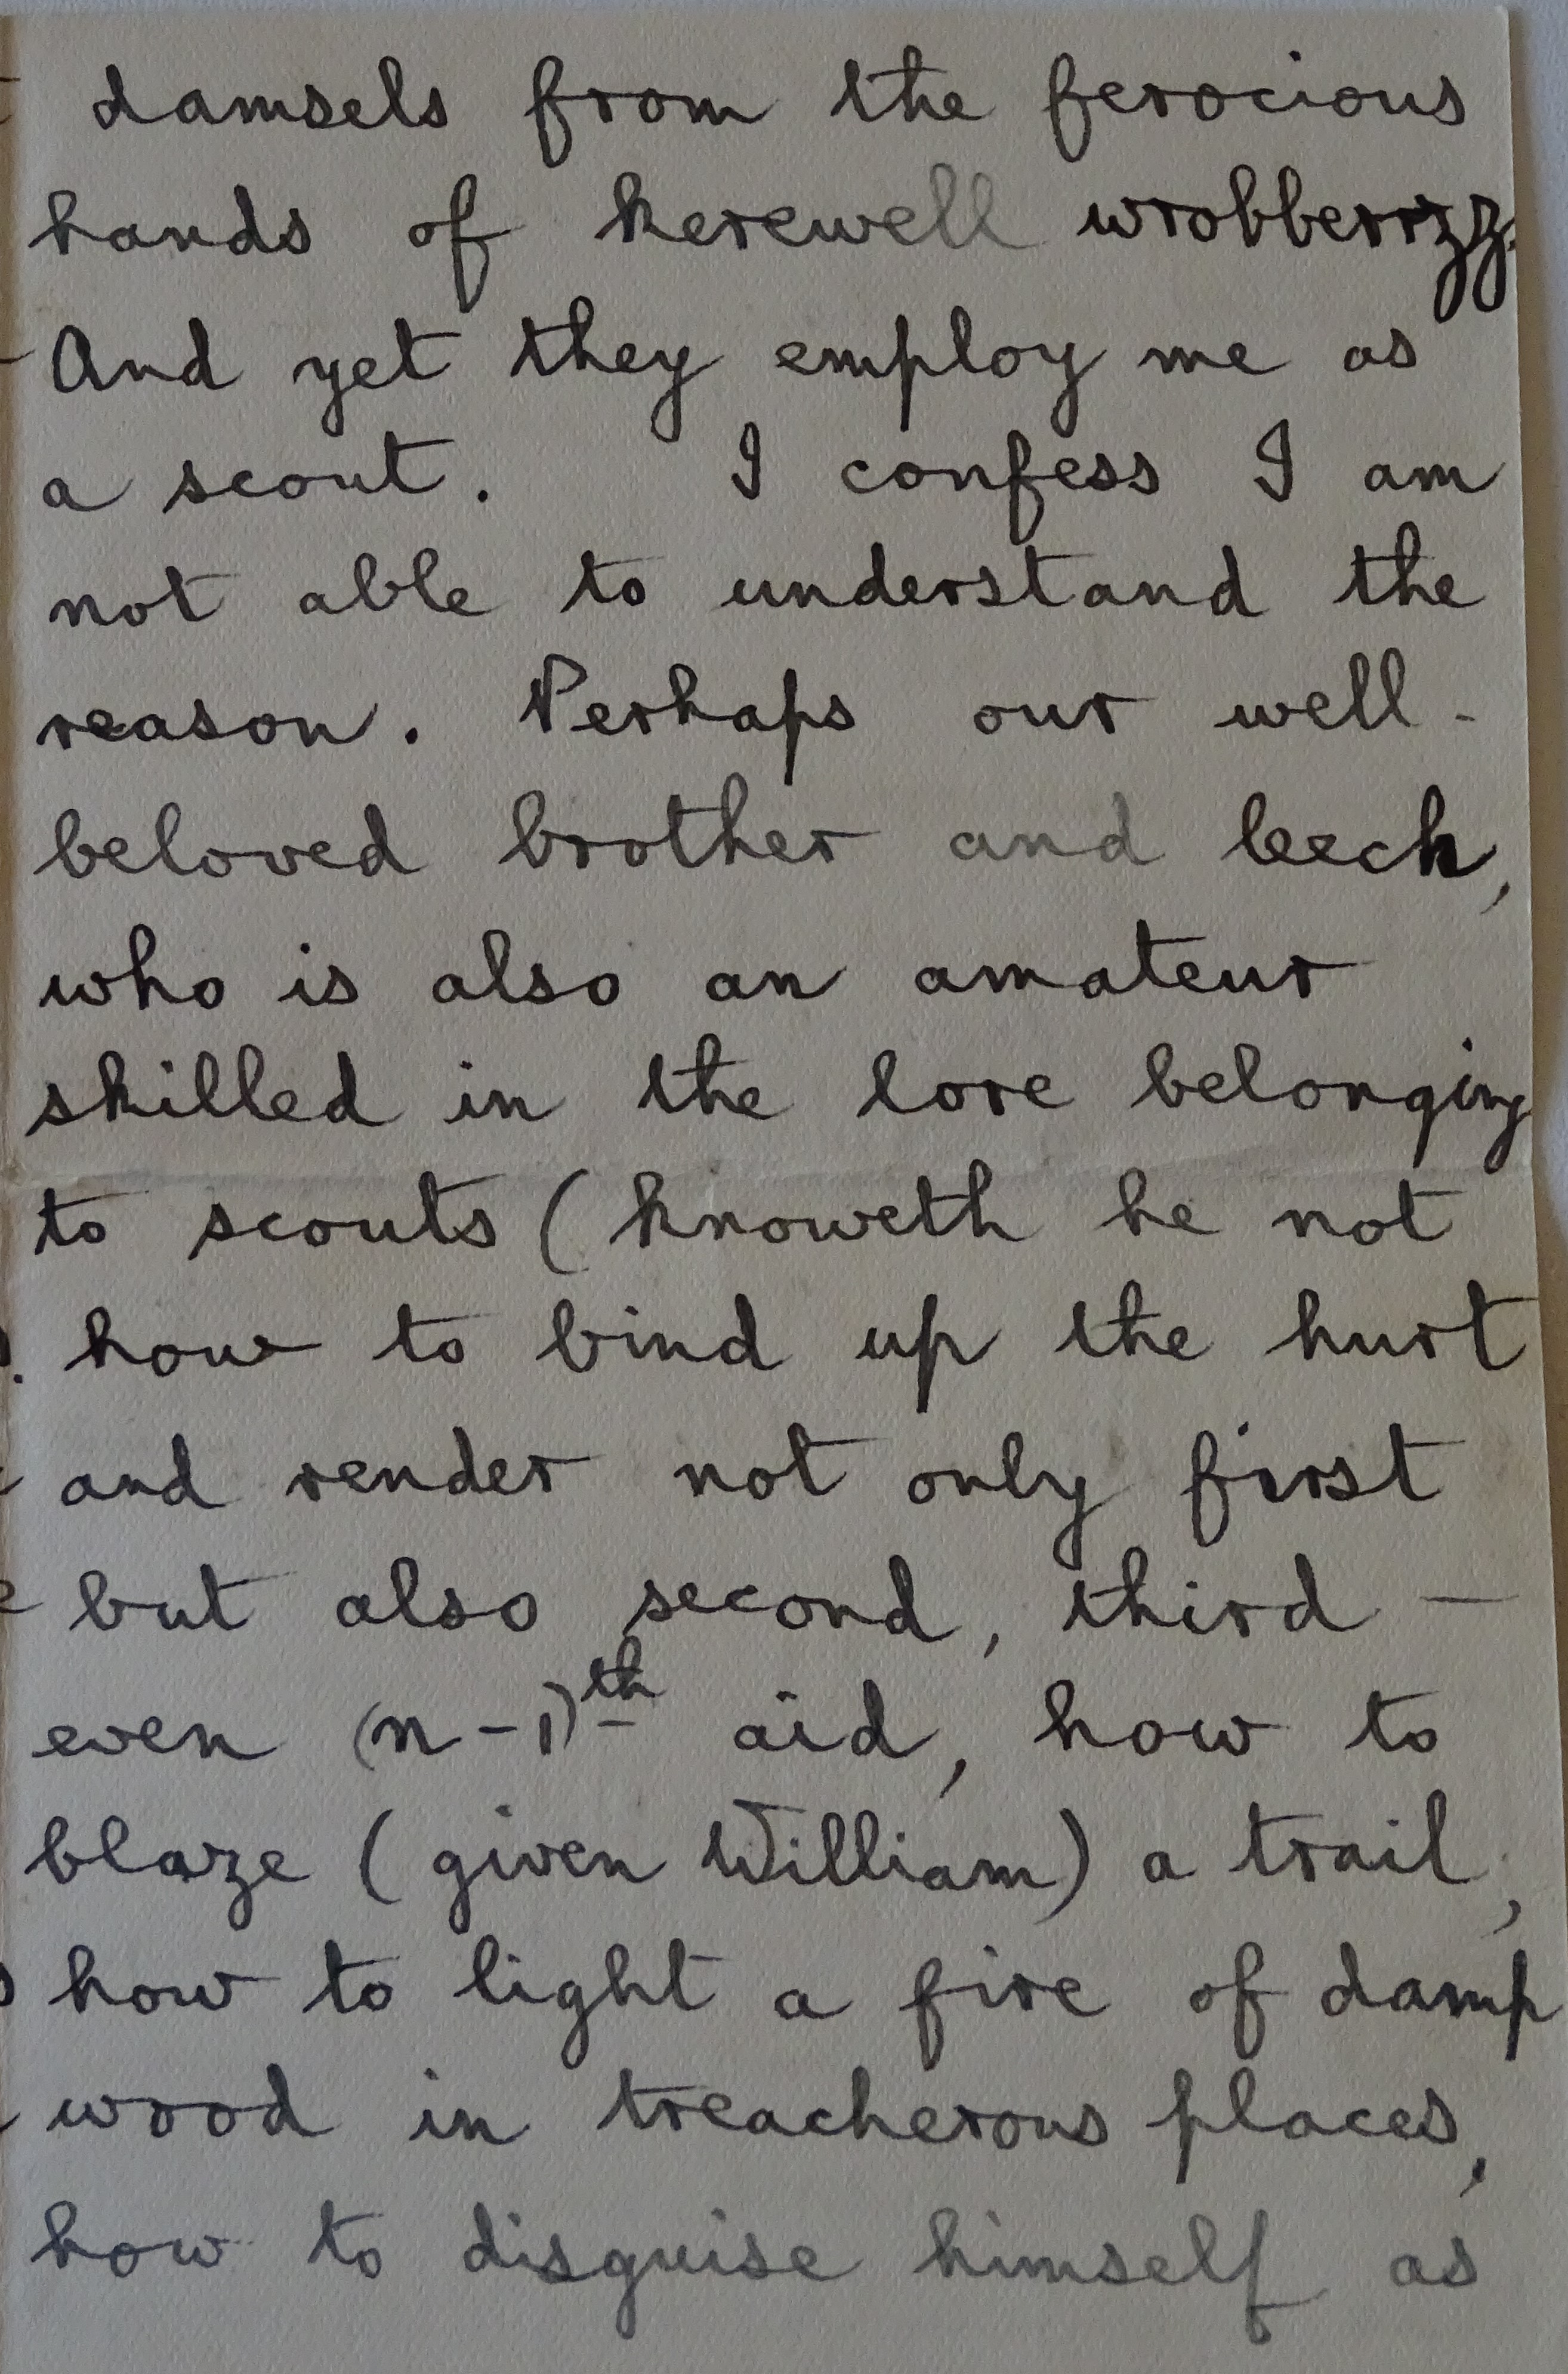 damsels from the ferocious
hands of kerewell wrobberrzz.
And yet they employ me as
a scout. I confess I am
not able to understand the
reason. Perhaps our well-
beloved brother and leech,
who is also an amateur
skilled in the lore belonging
to scouts (knoweth he not
how to bind up the hurt
and render not only first
but also second, third —
even (n-1)th aid, how to
blaze (given William) a trail,
how to light a fire of damp
wood in treacherous places,
how to disguise himself as